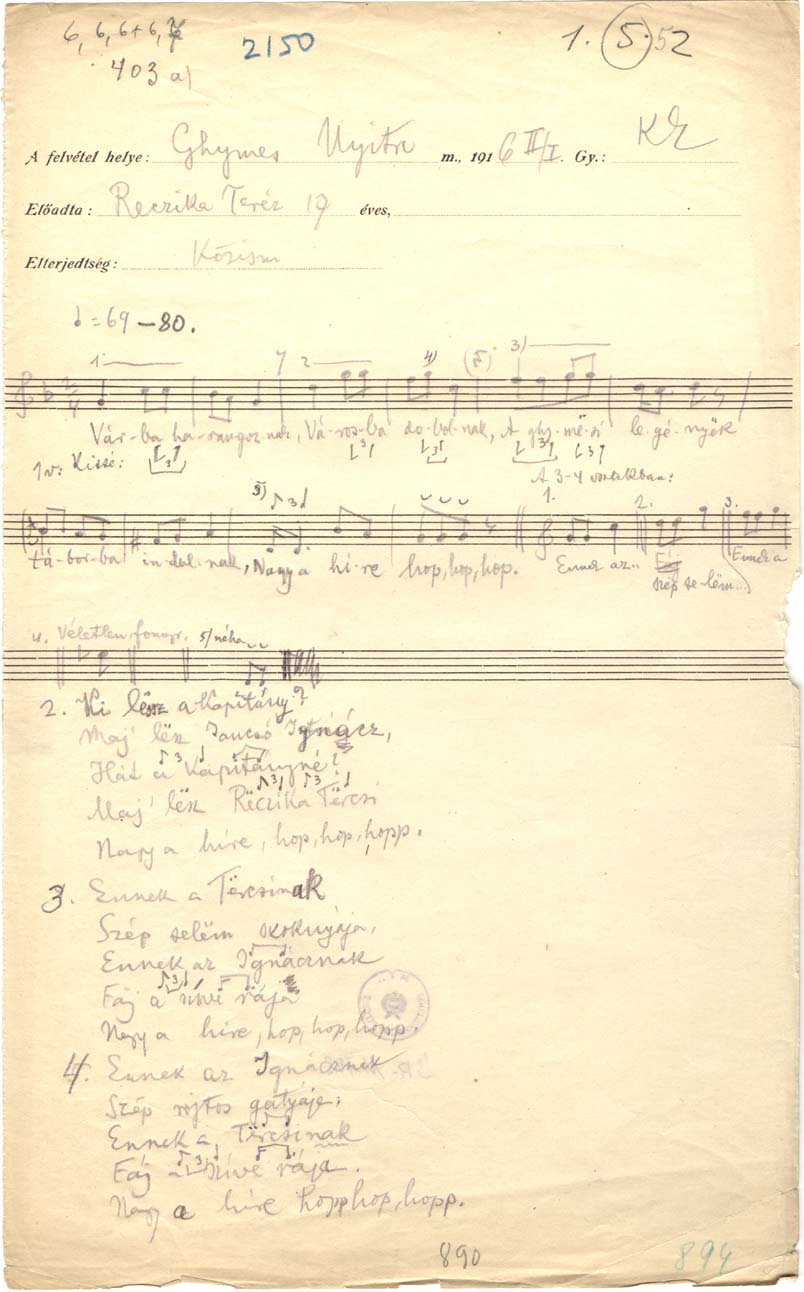 6, 6, 6+6, 7
2150
1. 5. 52
403 a)
A felvétel helye: Ghymes Nyitra m., 1916 II/I. Gy.: KE
Előadta: Reczika Teréz 19 éves,
Elterjedtség: Közism
= 69 – 80.
1. 7 2 4) 3)
Vár-ba ha-rangoz-nak, Vá-ros-ba do-bol-nak, A ghy-më-si le-gé-nyëk
1v: Kissé: 3 3 3 3 3
A 3-4 versszakban:
5) 3 1. 2. 3.
tá-bor-ba in-dul-nak, Nagy a hí-re hop, hop, hop. Ennek az.. Ennek a
szép se-lëm...
4. Véletlen fonogr. 5) néha
2. Ki lësz a Kapitány?
Maj' lësz Jancsó Ignácz,
Hát a Kapitányné?
Maj' lësz Rëczika Tërcsi
Nagy a híre, hop, hop, hopp.
3. Ennek a Tërcsinak
Szép selëm szoknyája,
Ennek az Ignácznak
Fáj a szíve rája
Nagy a híre, hop, hop, hopp.
4. Ennek az Ignácznak
Szép rojtos gatyája;
Ennek a Tërcsinak
Fáj a szíve rája.
Nagy a híre hopp hop, hopp.
890
894